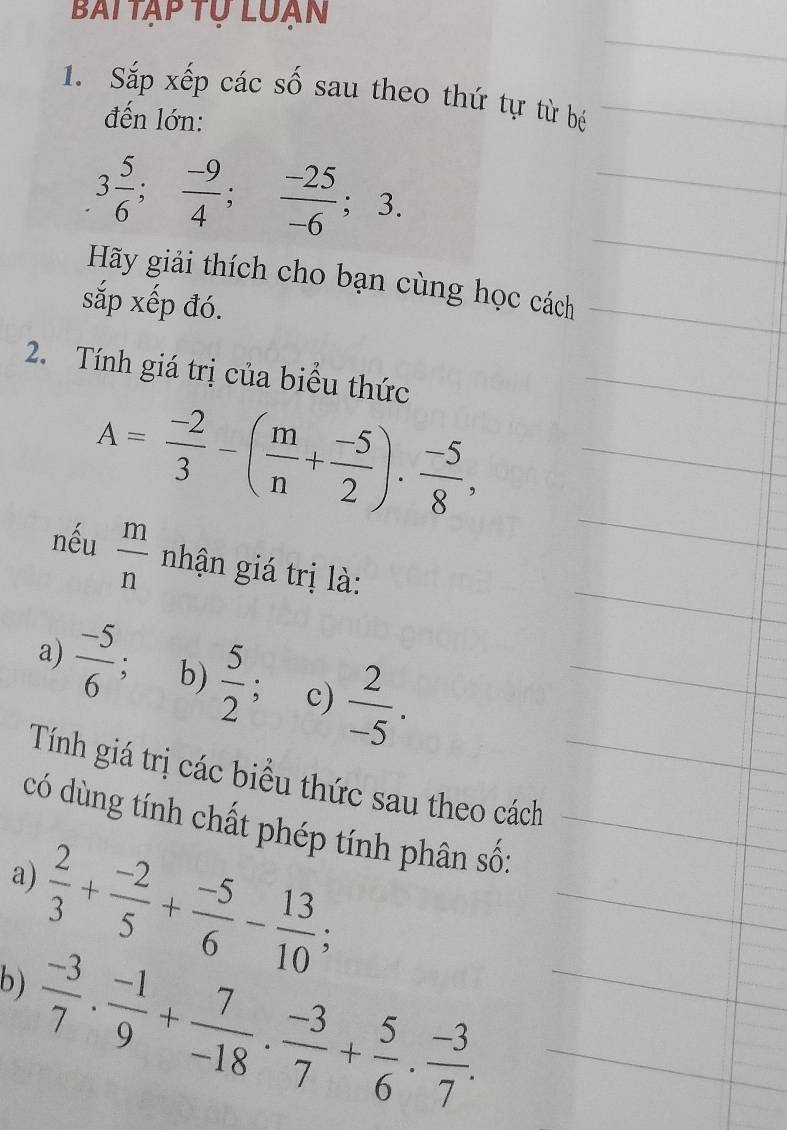 BÀI TẬP TỰ LUẬN
1. Sắp xếp các số sau theo thứ tự từ bé
đến lớn:
3 5/6; -9/4; -25/-6; 3.
Hãy giải thích cho bạn cùng học cách
sắp xếp đó.
2. Tính giá trị của biểu thức
A = -2/3 - (m/n + -5/2) . -5/8,
nếu m/n nhận giá trị là:
a) -5/6; b) 5/2; c) 2/-5.
Tính giá trị các biểu thức sau theo cách
có dùng tính chất phép tính phân số:
a) 2/3 + -2/5 + -5/6 - 13/10;
b) -3/7 . -1/9 + 7/-18 . -3/7 + 5/6 . -3/7.